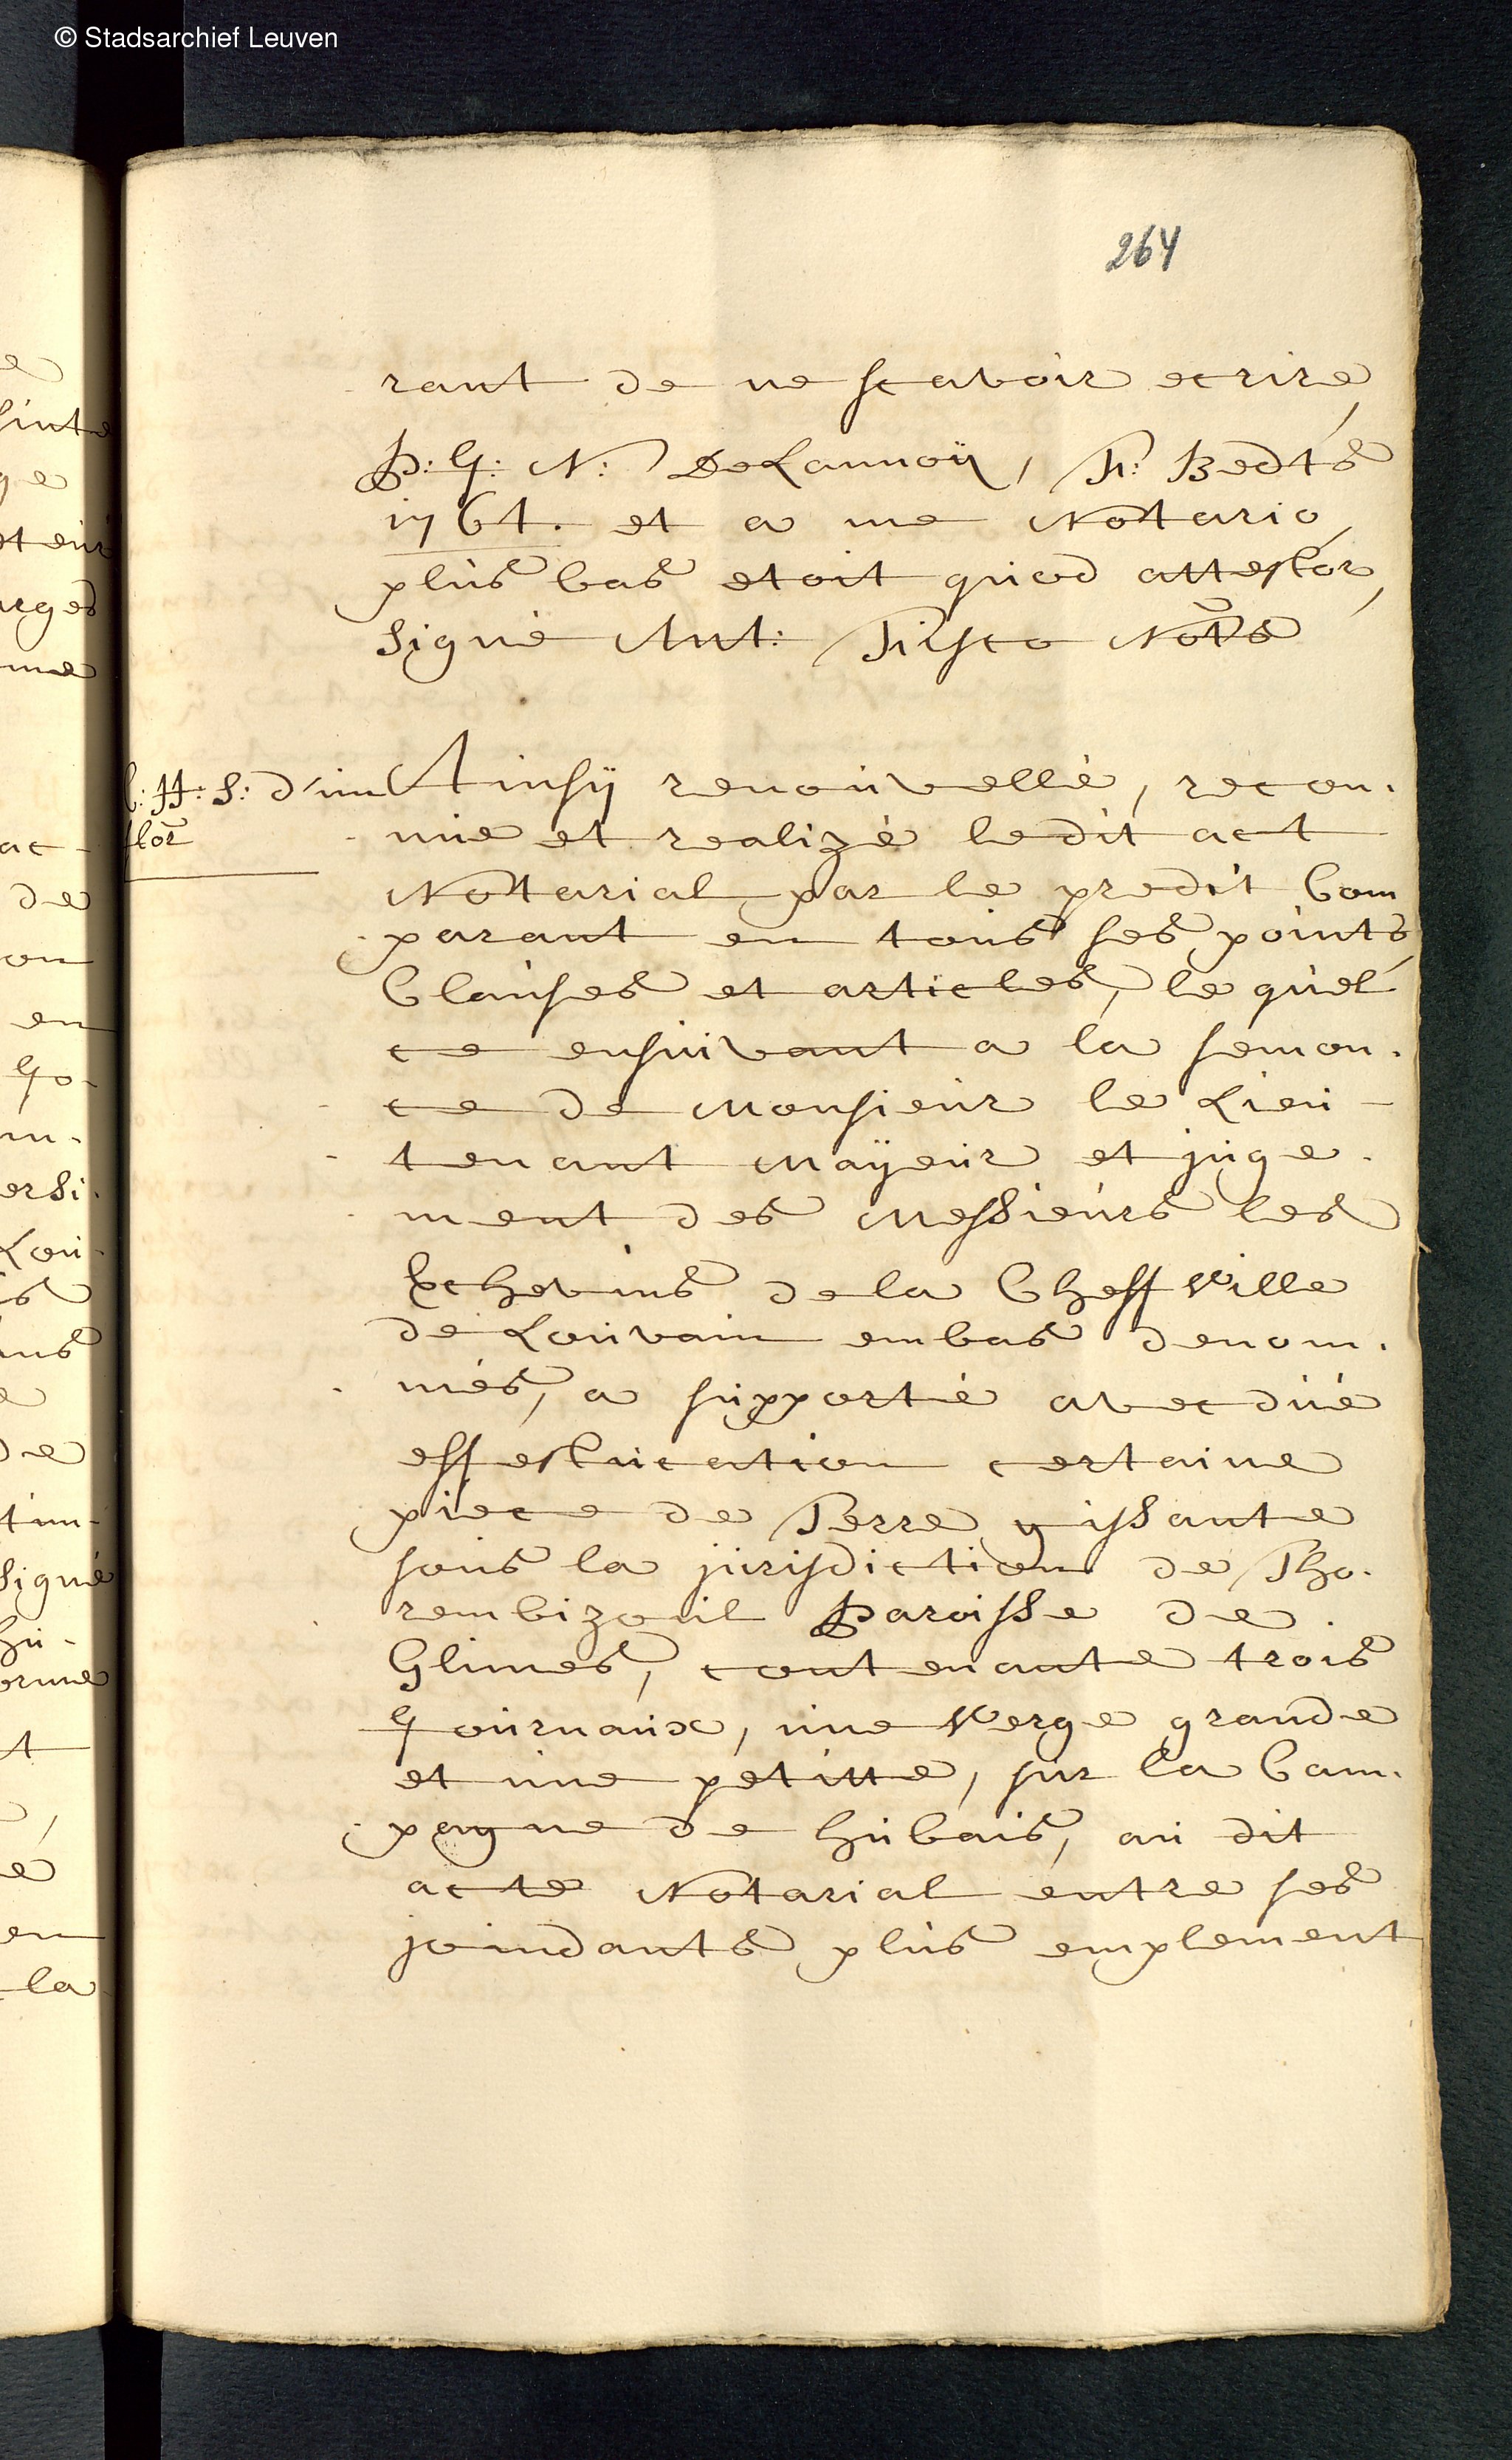 © Stadsarchief Leuven
264
rant de ne scavoir ecrire,
P: J: N: DeLannoÿ, F: Bedts
1764. et a me Notario,
plus bas etoit quod attestor,
signé Ant: Tisco Nots
d'un
flor
Ainsÿ renouvellé, recon.
nue et realizé ledit act
Notarial par le predit Com
parant en tous ses points,
Clauses et articles, le quel
ce ensuivant a la semon.
ce de Monsieur le Lieu-
tenant Maÿeur et juge.
ment des Messieurs les
Echevins dela Cheff Ville
de Louvain embas denom.
més, a supporté avec düe
effestucation certaine
piece de Terre gissante
sous la jurisdiction de Tho.
rembizoul Paroisse de
Glimes, contenante trois
Journaux, une Verge grande
et une petitte, sur la Cam.
pagne de hubais, au dit
acte Notarial entre ses
joindants plus emplement